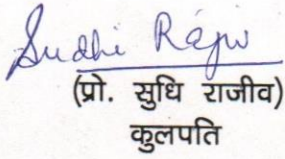 Sudhi Rajiv
(प्रो. सुधि राजीव)
कुलपति